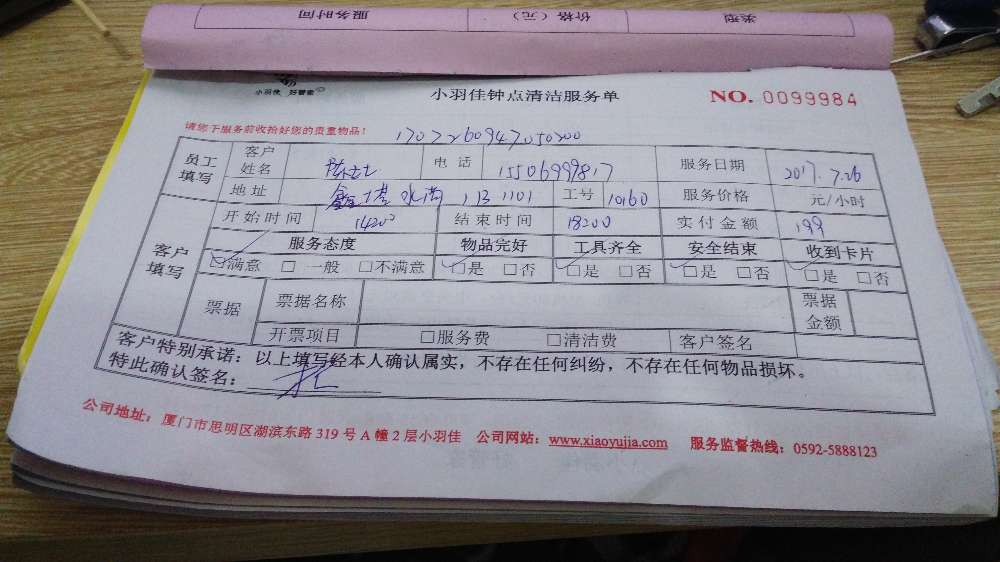 服务时间 价格（元） 类型
小羽佳 好管家
小羽佳钟点清洁服务单 NO. 0099984
请您于服务前收拾好您的贵重物品！
员工填写 客户姓名 陈女士 电话 15506999817 服务日期 2017.7.26
地址 水湾 113 1101 工号 10160 服务价格 元/小时
客户填写 开始时间 14200 结束时间 18200 实付金额 199
服务态度 物品完好 工具齐全 安全结束 收到卡片
☑满意 □ 一般 □不满意 ☑是 □否 ☑是 □否 ☑是 □否 ☑是 □否
票据 票据名称 票据金额
开票项目 □服务费 □清洁费 客户签名
客户特别承诺：以上填写经本人确认属实，不存在任何纠纷，不存在任何物品损坏。
特此确认签名：
公司地址：厦门市思明区湖滨东路 319 号 A 幢 2 层小羽佳 公司网站：www.xiaoyujia.com 服务监督热线：0592-5888123